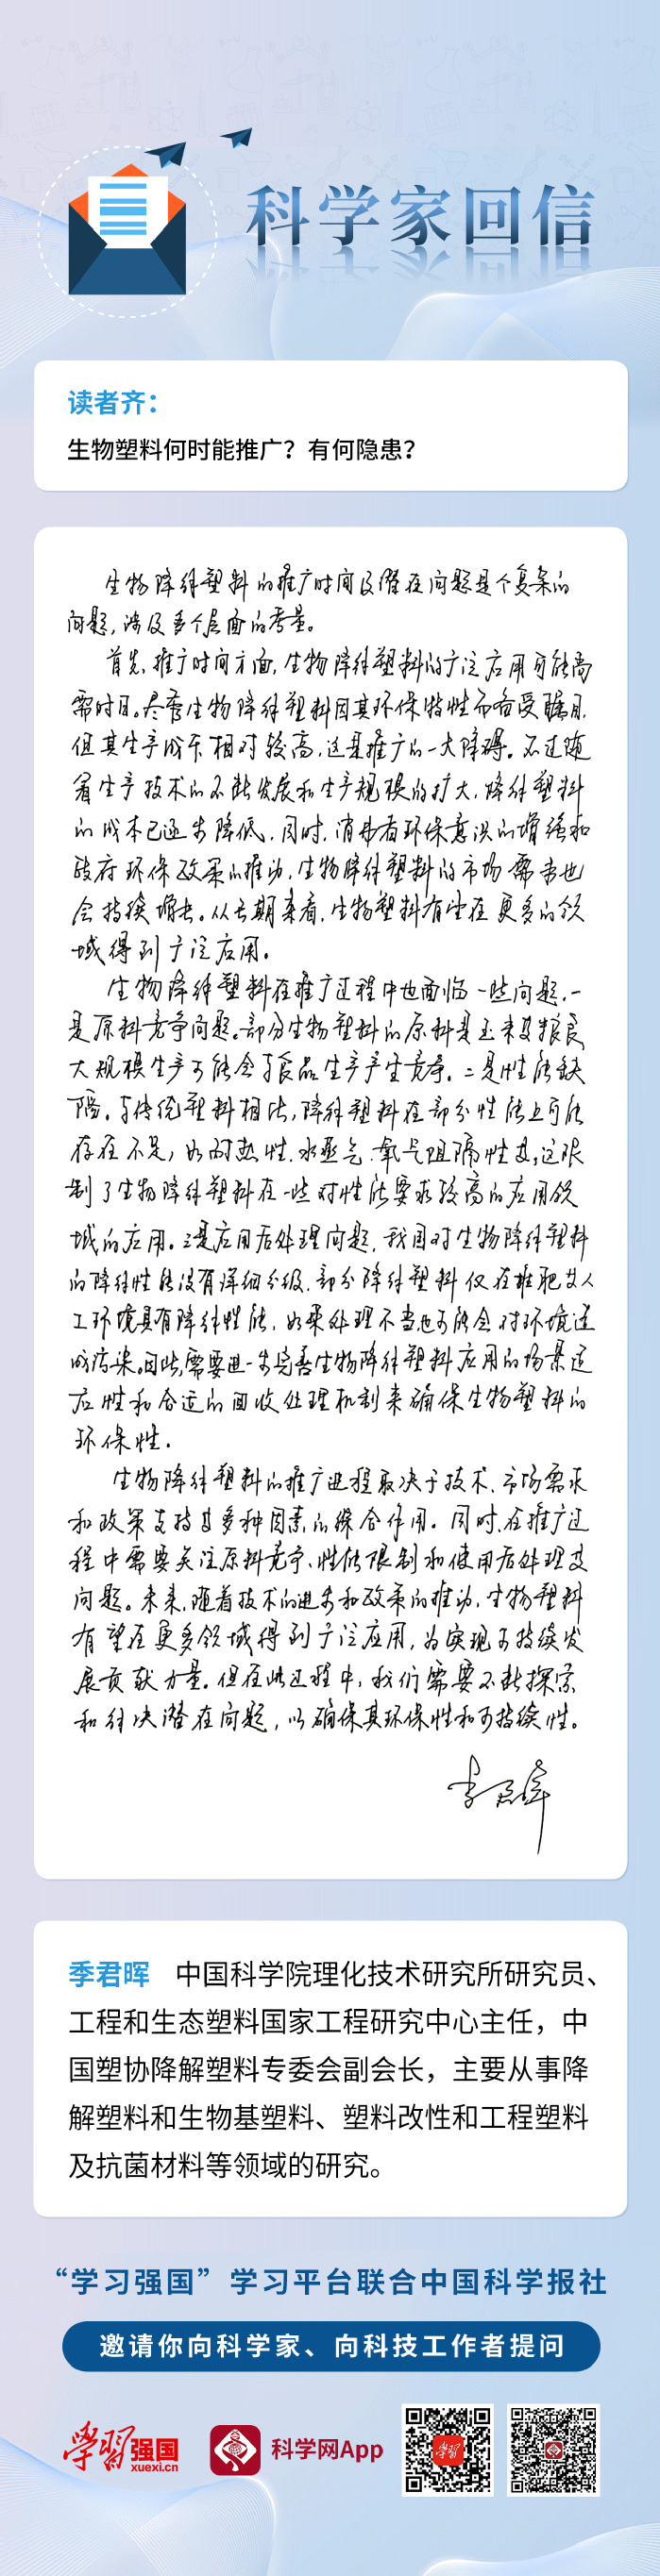 科学家回信
读者齐：
生物塑料何时能推广？有何隐患？
生物降解塑料的推广时间及潜在问题是个复杂的
问题，涉及多个层面的考量。
首先，推广时间方面，生物降解塑料的广泛应用可能尚
需时日。尽管生物降解塑料因其环保特性而备受瞩目，
但其生产成本相对较高，这是推广的一大障碍。不过随
着生产技术的不断发展和生产规模的扩大，降解塑料
的成本已逐步降低，同时，消费者环保意识的增强和
政府环保政策的推动，生物降解塑料的市场需求也
会持续增长。从长期来看，生物塑料有望在更多的领
域得到广泛应用。
生物降解塑料在推广过程中也面临一些问题，一
是原料竞争问题。部分生物塑料的原料是玉米及粮食，
大规模生产可能会与食品生产产生竞争。二是性能缺
陷。与传统塑料相比，降解塑料在部分性能上可能
存在不足，如耐热性、水蒸气、氧气阻隔性等，这限
制了生物降解塑料在一些对性能要求较高的应用领
域的应用。三是应用后处理问题，我国对生物降解塑料
的降解性能没有详细分级，部分降解塑料仅在堆肥等人
工环境具有降解性能，如果处理不当也可能会对环境造
成污染。因此，需要进一步完善生物降解塑料应用的场景适
应性和合适的回收处理机制来确保生物塑料的
环保性。
生物降解塑料的推广进程取决于技术、市场需求
和政策支持等多种因素的综合作用。同时，在推广过
程中需要关注原料竞争、性能限制和使用后处理等
问题。未来，随着技术的进步和政策的推动，生物塑料
有望在更多领域得到广泛应用，为实现可持续发
展贡献力量。但在此过程中，我们需要不断探索
和解决潜在问题，以确保其环保性和可持续性。
季君晖
季君晖 中国科学院理化技术研究所研究员、
工程和生态塑料国家工程研究中心主任，中
国塑协降解塑料专委会副会长，主要从事降
解塑料和生物基塑料、塑料改性和工程塑料
及抗菌材料等领域的研究。
“学习强国”学习平台联合中国科学报社
邀请你向科学家、向科技工作者提问
学习强国
xuexi.cn
科学网App
学习